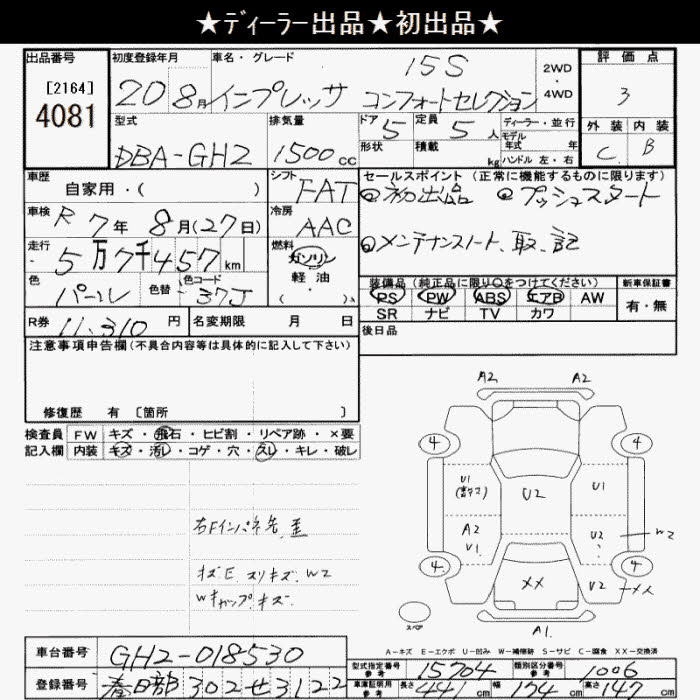 ★ディーラー出品★初出品★
出品番号 初度登録年月 車名・グレード 15S 2WD・4WD 評価点
[2164]
4081 20 8月 インプレッサ コンフォートセレクション 3
型式 排気量 ドア 5 定員 5人 ディーラー・並行 外装 内装
モデル年式 年
DBA-GH2 1500cc 形状 積載 kg ハンドル 左・右 C B
車歴 自家用・( ) シフト FAT セールスポイント (正常に機能するものに限ります)
◎初出品 ◎プッシュスタート
車検 R 7年 8月(27日) 冷房 AAC
走行 5万7千457km 燃料 ガソリン ◎メンテナンスノート、取、記
軽油・( )
色 パール 色替 色コード 37J
装備品 (純正品に限り○をつけてください) 新車保証書
PS PW ABS エアB AW 有・無
SR ナビ TV カワ
R券 11,310円 名変期限 月 日 後日品
注意事項申告欄(不具合内容等は具体的に記入して下さい)
修復歴 有 〔箇所 〕
検査員 FW キズ・飛石・ヒビ割・リペア跡・×要
記入欄 内装 キズ・汚レ・コゲ・穴・スレ・キレ・破レ
A2 A2
4 4
U1 U2 U1
A2 U2 W2
U1
4 4
XX U2
スペア
A1.
右Fインパネ先、歪
キズE スリキズ、W2
Wキャップキズ.
A-キズ E-エクボ U-凹み W-補修跡 S-サビ C-腐食 XX-交換済
車台番号 GH2-018530
型式指定番号 参考 15704 類別区分番号 参考 1006
登録番号 春日部 302 せ 3122
車庫証明用 参考 長さ 441cm 幅 174cm 高さ 147cm